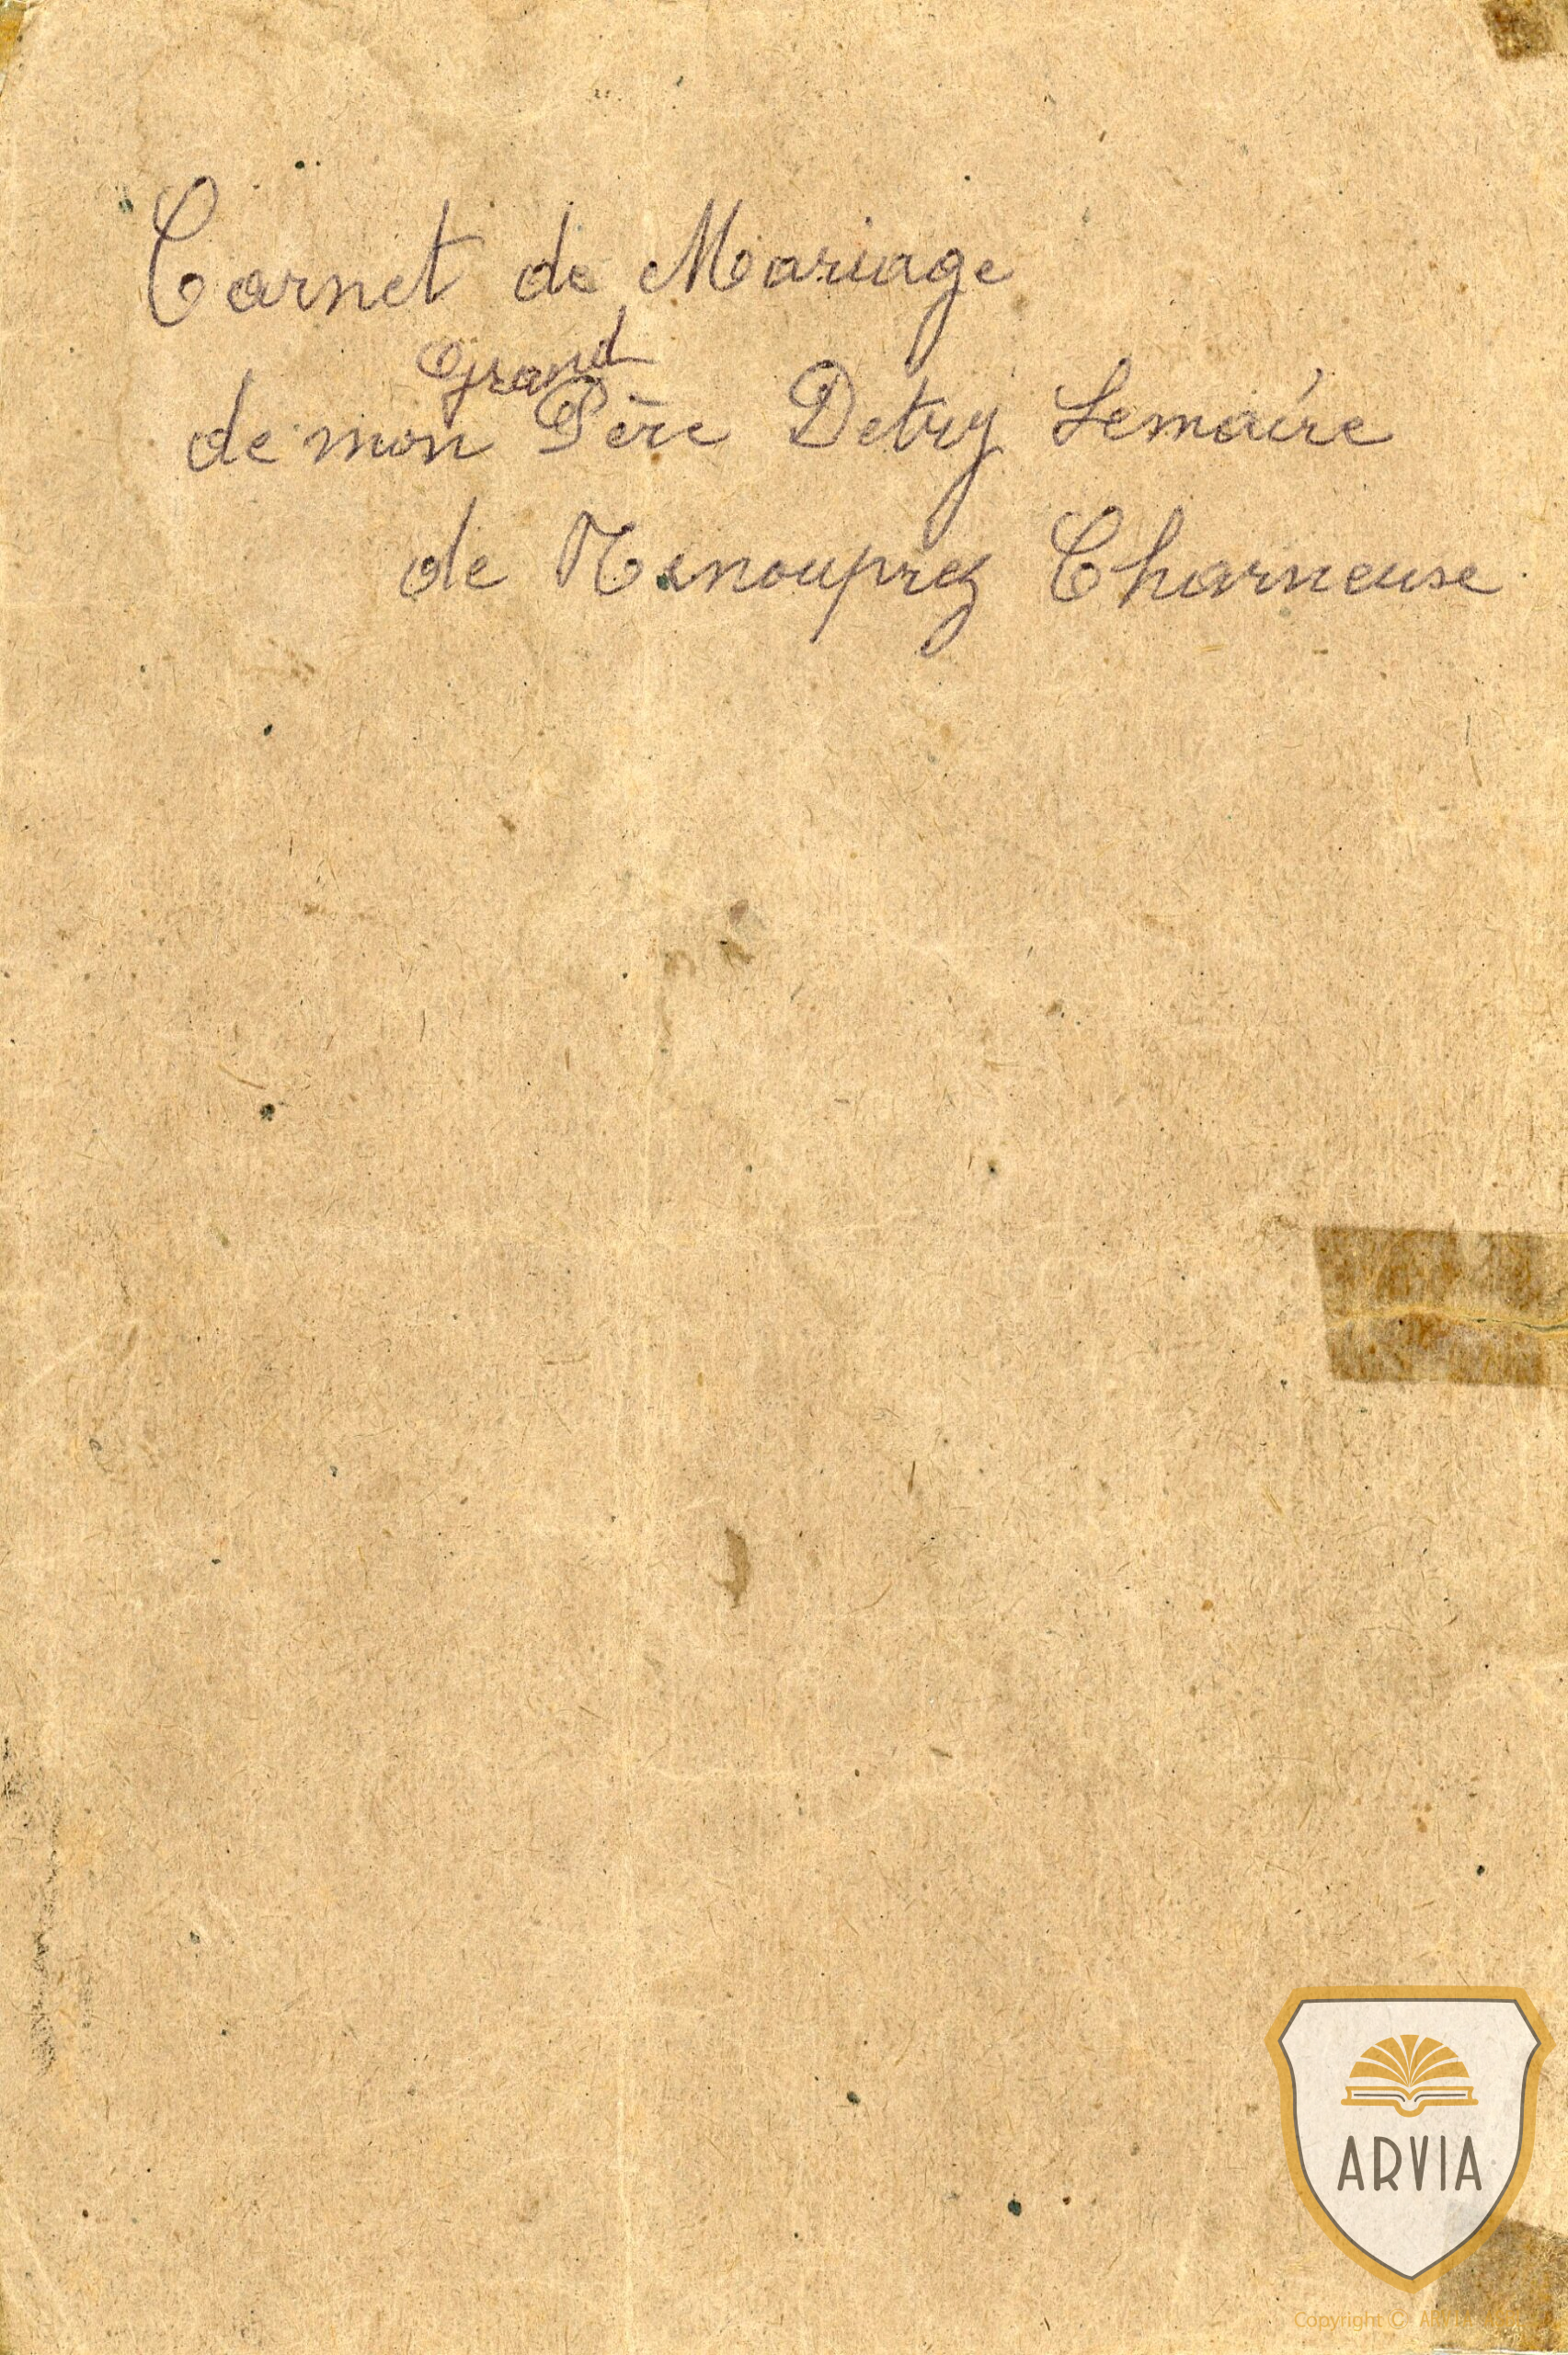 Carnet de Mariage
Grand
de mon Père Detry Lemaire
de Charneuse
ARVIA
Copyright ©